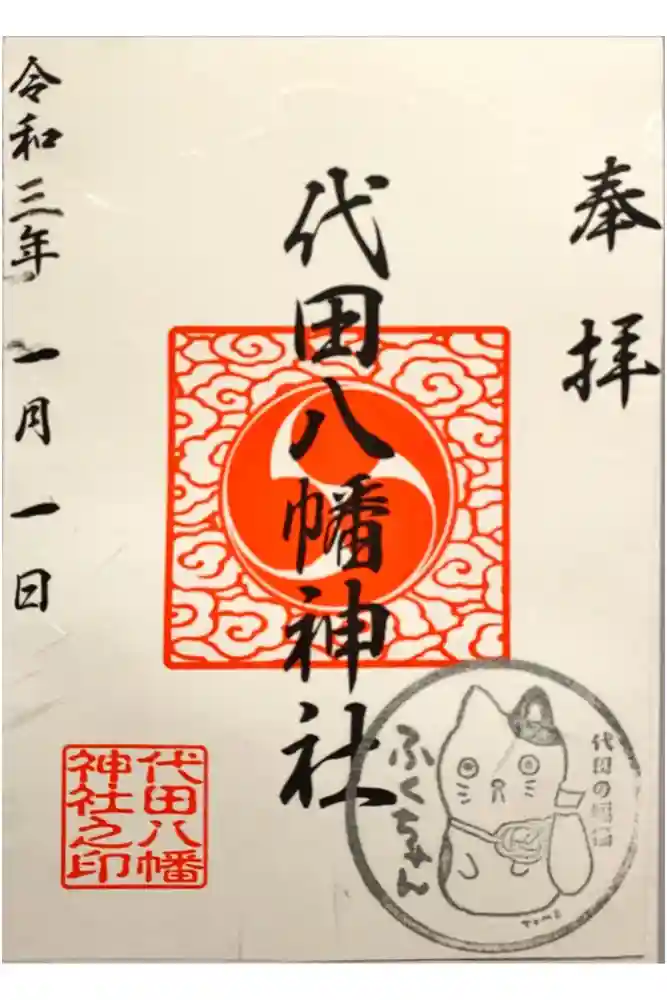 奉拝
代田八幡神社
令和三年 一月一日
代田八幡
神社之印
代田の
ふくちゃん
TOMO